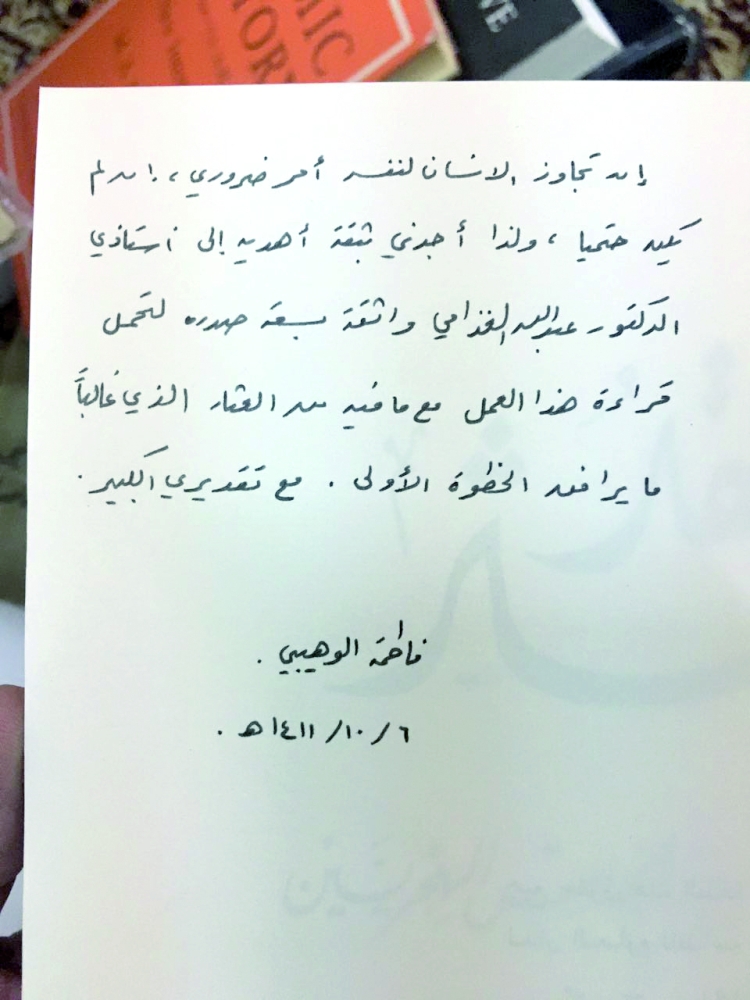 MIC
ORY
VE
إن تجاوز الانسان لنفسه أمر ضروري، إن لم
يكن حتميا، ولذا أجدني بثقة أهديه إلى أستاذي
الدكتور عبدالله الغذامي واثقة بسعة صدره لتحمل
قراءة هذا العمل مع ما فيه من العثار الذي غالباً
ما يرافق الخطوة الأولى. مع تقديري الكبير.
فاطمة الوهيبي.
٦/١٠/١٤١١هـ.